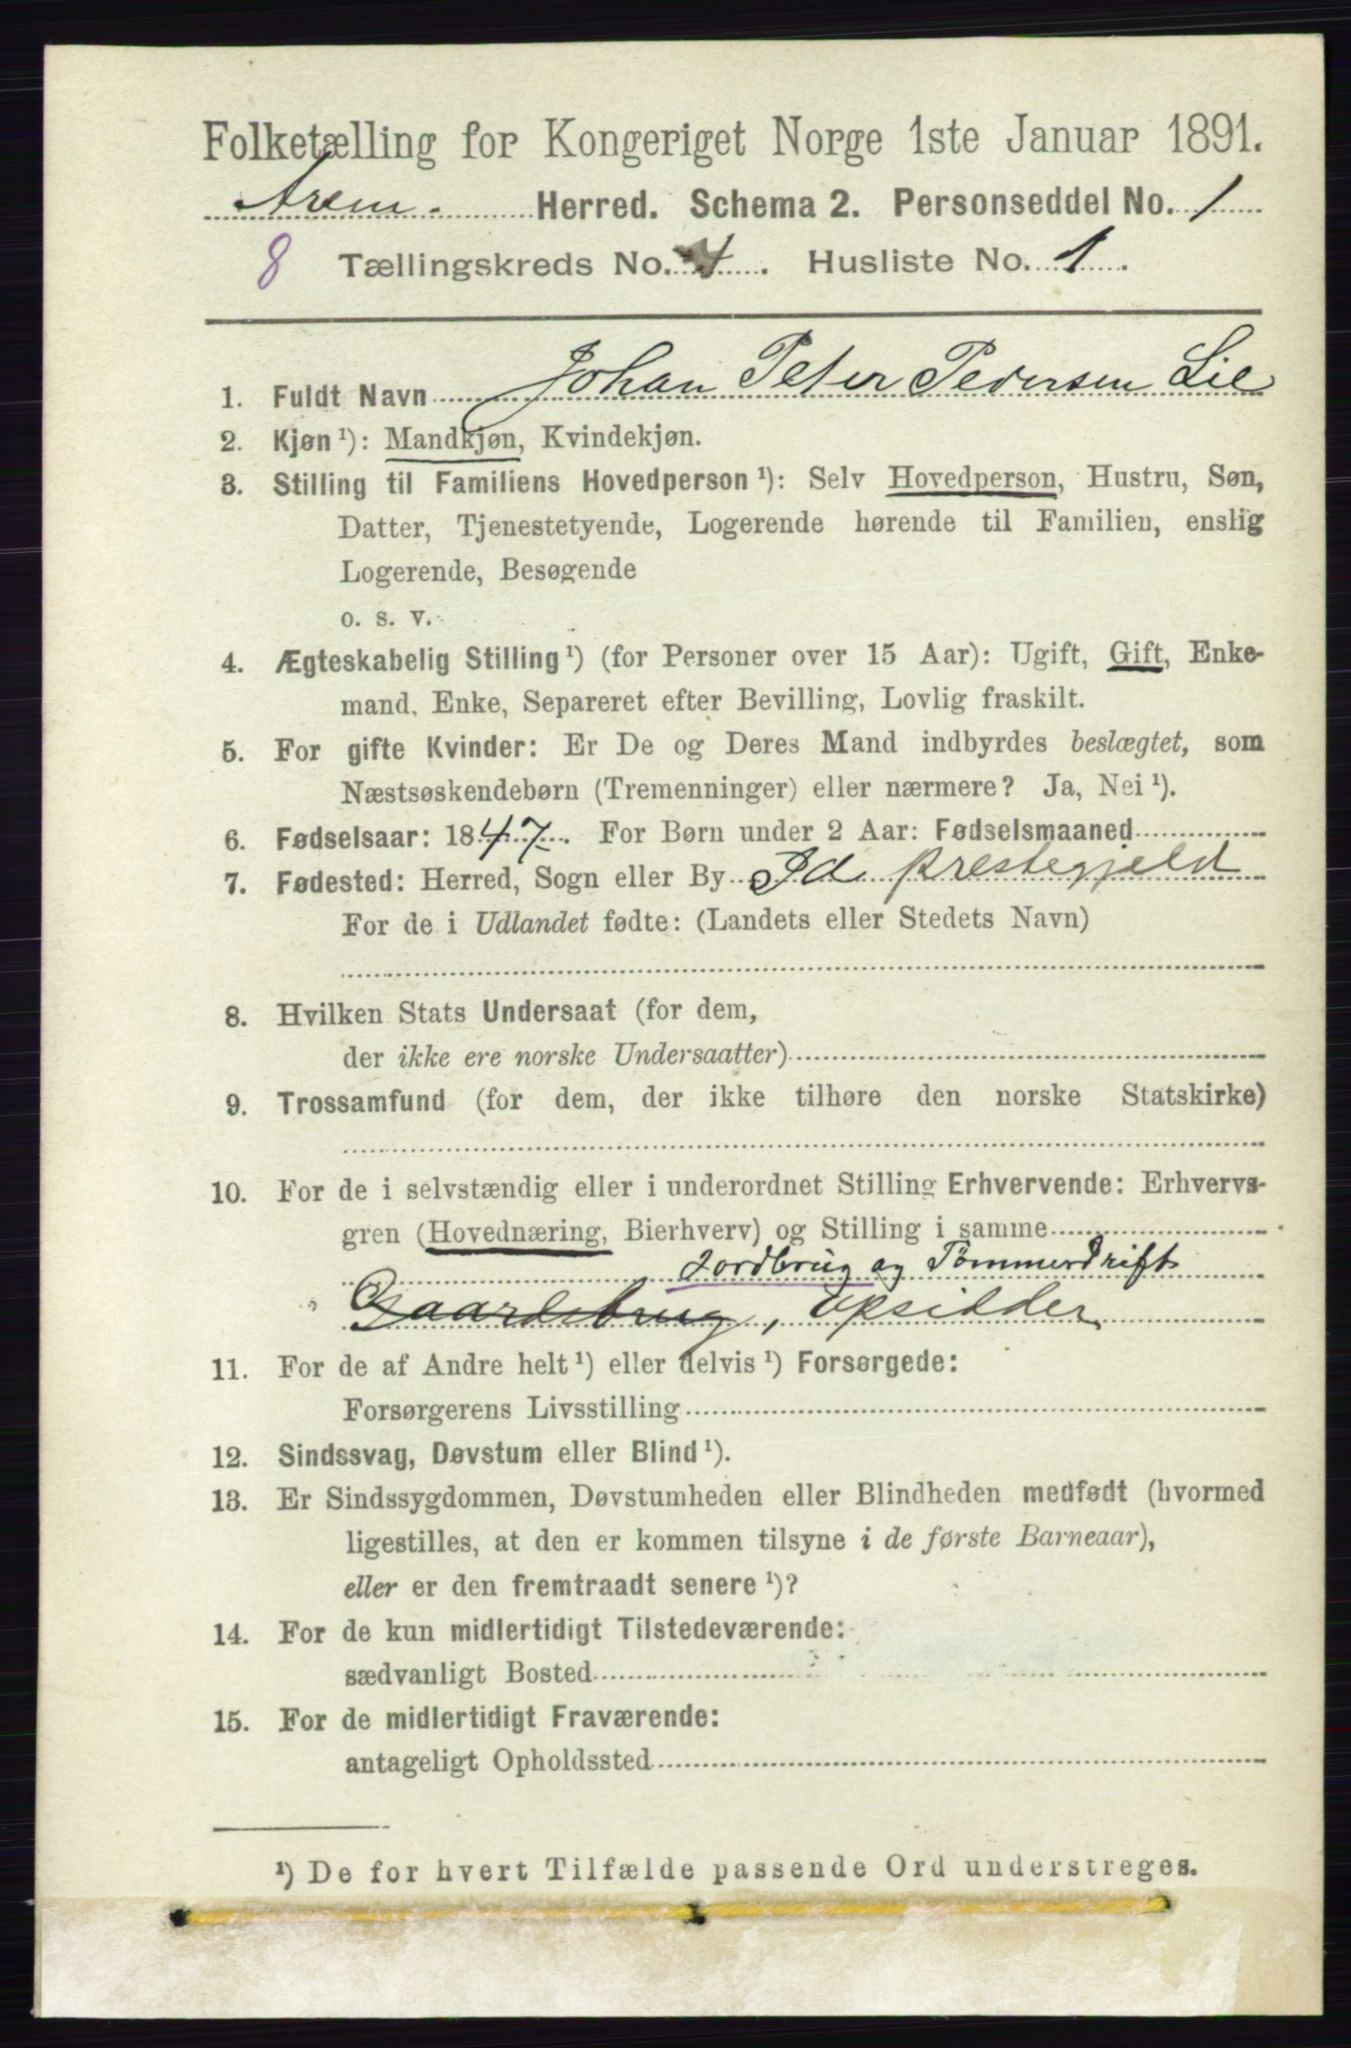 Folketælling for Kongeriget Norge 1ste Januar 1891.
Arem. Herred. Schema 2. Personseddel No. 1
8 Tællingskreds No. 4. Husliste No. 1.
1. Fuldt Navn Johan Peter Pedersen Lie
2. Kjøn ¹): Mandkjøn, Kvindekjøn.
3. Stilling til Familiens Hovedperson ¹): Selv Hovedperson, Hustru, Søn,
Datter, Tjenestetyende, Logerende hørende til Familien, enslig
Logerende, Besøgende
o. s. v.
4. Ægteskabelig Stilling ¹) (for Personer over 15 Aar): Ugift, Gift, Enke-
mand, Enke, Separeret efter Bevilling, Lovlig fraskilt.
5. For gifte Kvinder: Er De og Deres Mand indbyrdes beslægtet, som
Næstsøskendebørn (Tremenninger) eller nærmere? Ja, Nei ¹).
6. Fødselsaar: 1847. For Børn under 2 Aar: Fødselsmaaned
7. Fødested: Herred, Sogn eller By Id prestegjeld
For de i Udlandet fødte: (Landets eller Stedets Navn)
8. Hvilken Stats Undersaat (for dem,
der ikke ere norske Undersaatter)
9. Trossamfund (for dem, der ikke tilhøre den norske Statskirke)
10. For de i selvstændig eller i underordnet Stilling Erhvervende: Erhvervs-
gren (Hovednæring, Bierhverv) og Stilling i samme
Jordbrug og Tømmerdrift
Gaardsbrug, Opsidder
11. For de af Andre helt ¹) eller delvis ¹) Forsørgede:
Forsørgerens Livsstilling
12. Sindssvag, Døvstum eller Blind ¹).
13. Er Sindssygdommen, Døvstumheden eller Blindheden medfødt (hvormed
ligestilles, at den er kommen tilsyne i de første Barneaar),
eller er den fremtraadt senere ¹)?
14. For de kun midlertidigt Tilstedeværende:
sædvanligt Bosted
15. For de midlertidigt Fraværende:
antageligt Opholdssted
¹) De for hvert Tilfælde passende Ord understreges.